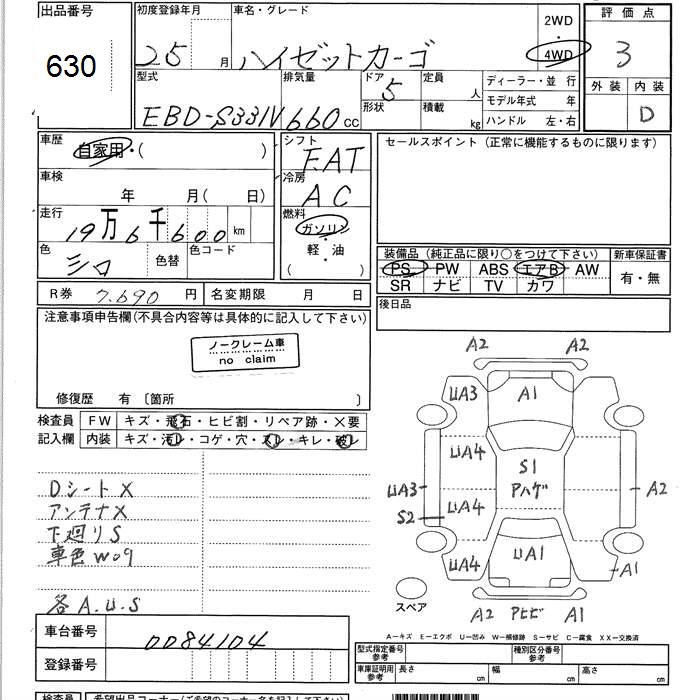 出品番号
630
初度登録年月
25 月
車名・グレード
ハイゼットカーゴ
2WD
・
4WD
評価点
3
外装 内装
D
型式
EBD-S331V
排気量
660 cc
ドア
5
形状
定員
人
積載
kg
ディーラー・並 行
モデル年式 年
ハンドル 左・右
車歴
自家用・( )
車検
年 月( 日)
走行
19万6千600 km
色
シロ
色替
色コード
シフト
F.AT
冷房
AC
燃料
ガソリン
軽・油
( )
セールスポイント(正常に機能するものに限ります)
装備品(純正品に限り○をつけて下さい)
PS PW ABS エアB AW
SR ナビ TV カワ
新車保証書
有・無
後日品
R券 7.690 円
名変期限 月 日
注意事項申告欄(不具合内容等は具体的に記入して下さい)
ノークレーム車
no claim
修復歴 有〔箇所 〕
検査員
記入欄
FW キズ・飛石・ヒビ割・リペア跡・×要
内装 キズ・汚レ・コゲ・穴・スレ・キレ・破レ
Dシート X
アンテナ X
下廻り S
車色 W09
各 A.U.S
車台番号
0084104
登録番号
A2 A2
UA3 A1
UA4
S1
アハゲ
UA3
UA4
A2
S2
UA4 UA1
A1
スペア
A2 アヒビ A1
A—キズ E—エクボ U—凹み W—補修跡 S—サビ C—腐食 XX—交換済
型式指定番号
参考
種別区分番号
参考
車庫証明用
参考
長さ cm
幅 cm
高さ cm
検査員
希望出品コーナー(ご希望のコーナー名を記入して下さい)